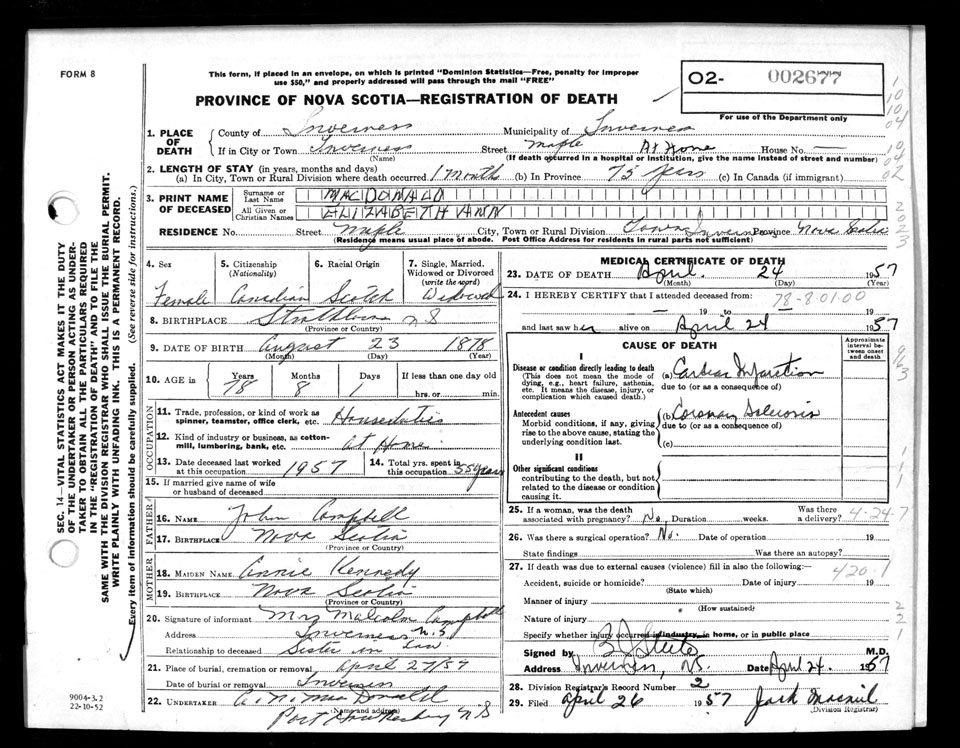 FORM 8
This form, if placed in an envelope, on which is printed "Dominion Statistics—Free, penalty for improper
use $50," and properly addressed will pass through the mail "FREE"
PROVINCE OF NOVA SCOTIA—REGISTRATION OF DEATH
O2- 002677
For use of the Department only
1. PLACE OF DEATH
County of Inverness Municipality of Inverness
If in City or Town Inverness Street Maple At Home House No. —
(Name) (If death occurred in a hospital or institution, give the name instead of street and number)
2. LENGTH OF STAY (in years, months and days)
(a) In City, Town or Rural Division where death occurred 1 Months (b) In Province 75 Years (c) In Canada (if immigrant)
3. PRINT NAME OF DECEASED
Surname or Last Name MACDONALD
All Given or Christian Names ELIZABETH ANN
RESIDENCE No. Street Maple City, Town or Rural Division Town Inverness Province Nova Scotia
(Residence means usual place of abode. Post Office Address for residents in rural parts not sufficient)
4. Sex Female
5. Citizenship (Nationality) Canadian
6. Racial Origin Scotch
7. Single, Married, Widowed or Divorced (write the word) Widowed
8. BIRTHPLACE Strathlorne N S
(Province or Country)
9. DATE OF BIRTH August 23 1878
(Month) (Day) (Year)
10. AGE in Years 78 Months 8 Days 1 If less than one day old
hrs. or min.
OCCUPATION
11. Trade, profession, or kind of work as spinner, teamster, office clerk, etc. Houseduties
12. Kind of industry or business, as cotton-mill, lumbering, bank, etc. at Home
13. Date deceased last worked at this occupation 1957
14. Total yrs. spent in this occupation 55 years
15. If married give name of wife or husband of deceased
FATHER
16. NAME John Campbell
17. BIRTHPLACE Nova Scotia
(Province or Country)
MOTHER
18. MAIDEN NAME Annie Kennedy
19. BIRTHPLACE Nova Scotia
(Province or Country)
20. Signature of informant Mrs Malcolm Campbell
Address Inverness N.S
Relationship to deceased Sister in Law
21. Place of burial, cremation or removal April 27/57
Date of burial or removal Inverness
22. UNDERTAKER
(Name and address)
Port Hawkesbury N S
MEDICAL CERTIFICATE OF DEATH
23. DATE OF DEATH April 24 1957
(Month) (Day) (Year)
24. I HEREBY CERTIFY that I attended deceased from: 78-8-01-00
— 19 to — 19
and last saw her alive on April 24 1957
CAUSE OF DEATH
Approximate interval between onset and death
I
Disease or condition directly leading to death
(This does not mean the mode of dying, e.g., heart failure, asthenia, etc. It means the disease, injury, or complication which caused death.)
(a) Cardiac Infarction
due to (or as a consequence of)
Antecedent causes
Morbid conditions, if any, giving rise to the above cause, stating the underlying condition last.
(b) Coronary Sclerosis
due to (or as a consequence of)
(c)
II
Other significant conditions
contributing to the death, but not related to the disease or condition causing it.
25. If a woman, was the death associated with pregnancy? No. Duration weeks. Was there a delivery? 4-24-7
26. Was there a surgical operation? No. Date of operation 19
State findings Was there an autopsy?
27. If death was due to external causes (violence) fill in also the following:— 420.1
Accident, suicide or homicide? Date of injury 19
(State which)
Manner of injury
(How sustained)
Nature of injury
Specify whether injury occurred in industry, in home, or in public place
Signed by M.D.
Address Inverness, NS. Date April 24. 1957
28. Division Registrar's Record Number 2
29. Filed April 26 1957 Jack Macneil
(Division Registrar)
SEC. 14—VITAL STATISTICS ACT MAKES IT THE DUTY
OF THE UNDERTAKER OR PERSON ACTING AS UNDER-
TAKER TO OBTAIN ALL THE PARTICULARS REQUIRED
IN THE "REGISTRATION OF DEATH" AND TO FILE THE
SAME WITH THE DIVISION REGISTRAR WHO SHALL ISSUE THE BURIAL PERMIT.
WRITE PLAINLY WITH UNFADING INK. THIS IS A PERMANENT RECORD.
Every item of information should be carefully supplied. (See reverse side for instructions.)
9004-3.2
22-10-52